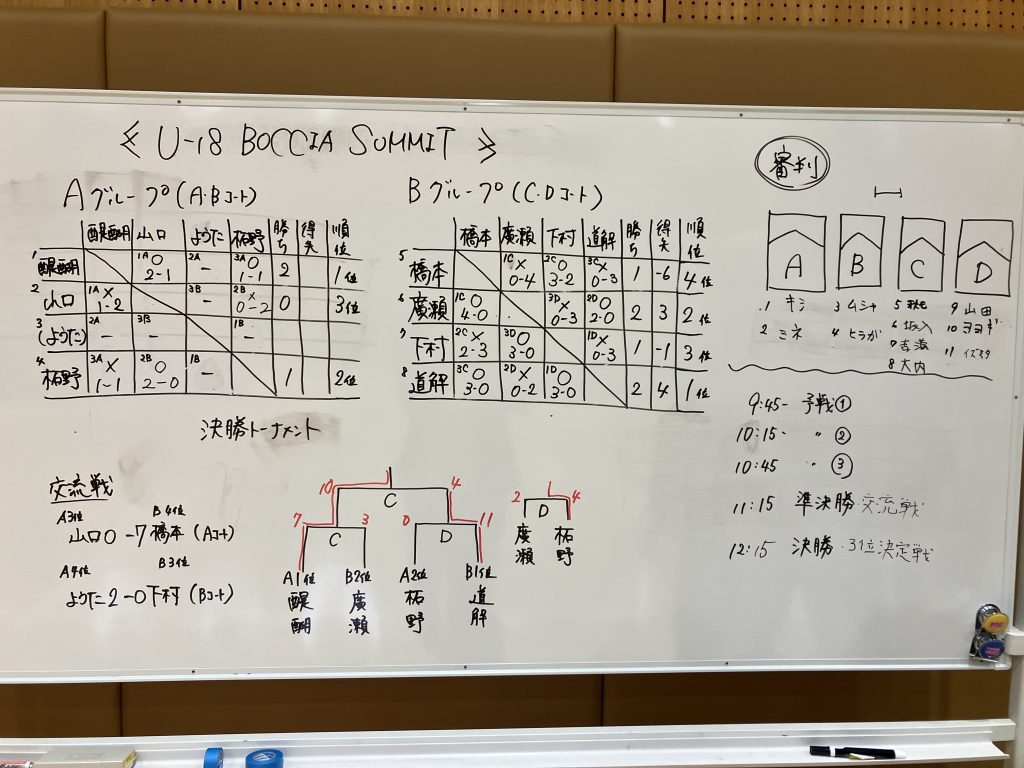 ≪ U-18 BOCCIA SUMMIT ≫
Aグループ(A・Bコート)
醍醐 山口 ようた 柘野 勝ち 得失 順位
1 醍醐 1A ○ 2-1 2A - 3A ○ 1-1 2 1位
2 山口 1A × 1-2 3B - 2B × 0-2 0 3位
3 (ようた) 2A - 3B - 1B -
4 柘野 3A × 1-1 2B ○ 2-0 1B - 1 2位
Bグループ(C・Dコート)
橋本 廣瀬 下村 道解 勝ち 得失 順位
5 橋本 1C × 0-4 2C ○ 3-2 3C × 0-3 1 -6 4位
6 廣瀬 1C ○ 4-0 3D × 0-3 2D ○ 2-0 2 3 2位
7 下村 2C × 2-3 3D ○ 3-0 1D × 0-3 1 -1 3位
8 道解 3C ○ 3-0 2D × 0-2 1D ○ 3-0 2 4 1位
決勝トーナメント
交流戦
A3位 B4位
山口 0-7 橋本 (Aコート)
A4位 B3位
ようた 2-0 下村 (Bコート)
10 C 4
7 C 3 0 D 11
A1位 B2位 A2位 B1位
醍醐 廣瀬 柘野 道解
2 D 4
廣瀬 柘野
審判
A B C D
1 キシ 3 ムシャ 5 9 山田
2 ミネ 4 ヒラガ 6 坂入 10 ヨヨギ
8 大内 11
9:45- 予戦①
10:15- 〃 ②
10:45 〃 ③
11:15 準決勝 交流戦
12:15 決勝・3位決定戦